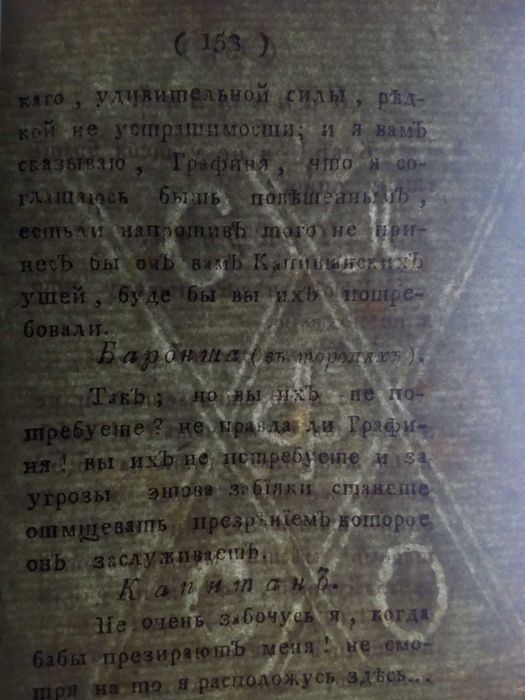 ( 153 )
каго, удивительной силы, рѣд-
кой не устрашимости; и я вамЪ
сказываю, Графиня, что я со-
глашаюсь быть повѣшеннымЪ,
естьли напротивЪ того не при-
несЪ бы онЪ вамЪ КапитанскихЪ
ушей, буде бы вы ихЪ потре-
бовали.
Баронша (въ торопяхъ).
ТакЪ; но вы ихЪ не по-
требуете? не правда ли Графи-
ня! вы ихЪ не потребуете и за
угрозы этова забіяки станете
отмщевать презрѣніемЪ которое
онЪ заслуживаетЪ.
КапитанЪ.
Не очень забочусь я, когда
бабы презираютЪ меня! не смо-
тря на то я расположусь здѣсь...